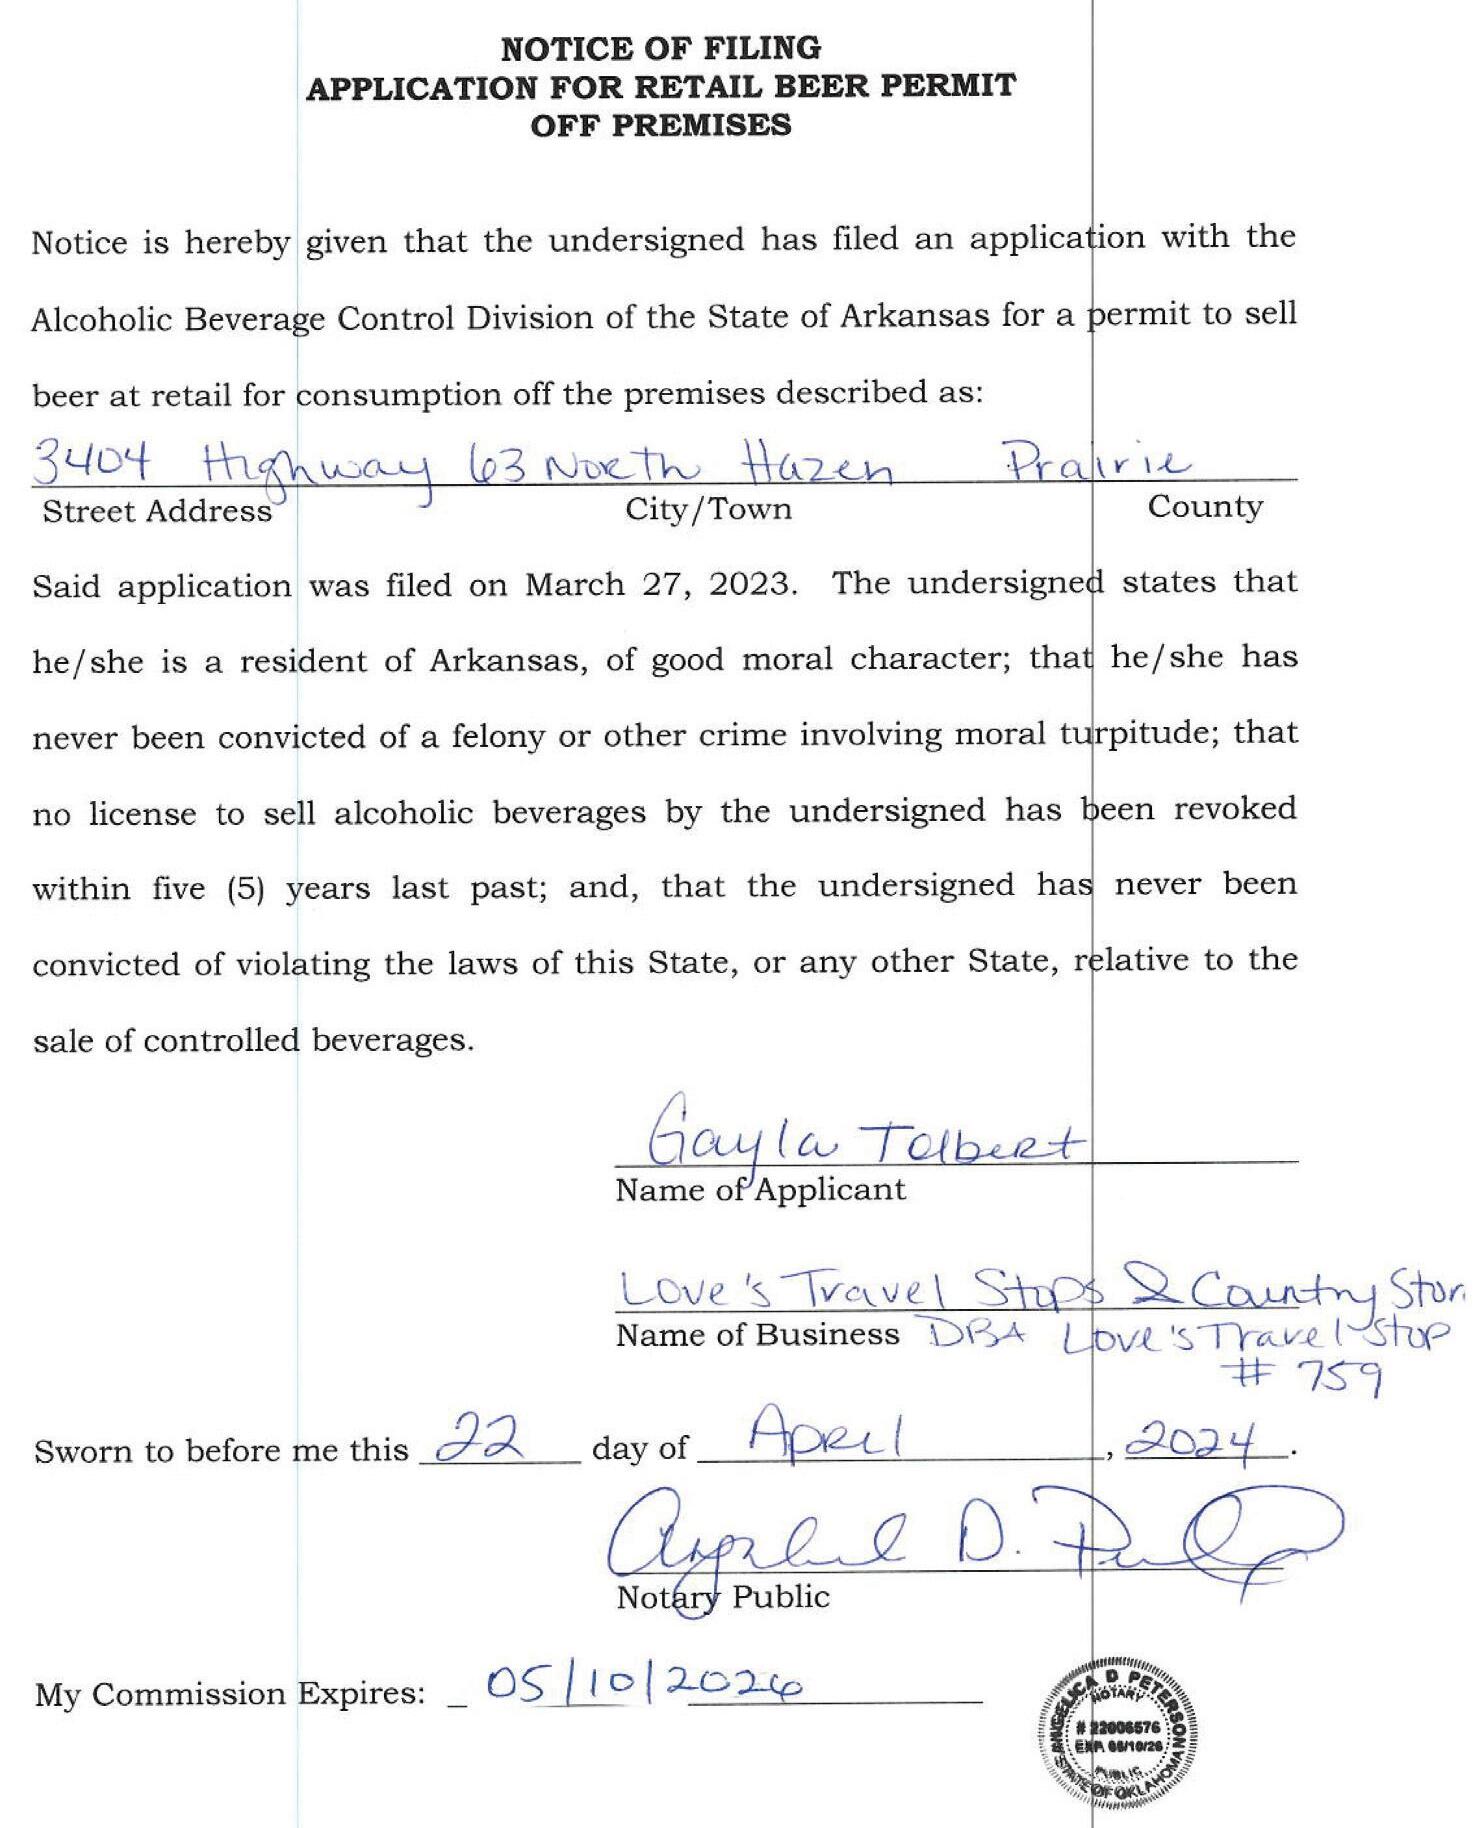 NOTICE OF FILING
APPLICATION FOR RETAIL BEER PERMIT
OFF PREMISES
Notice is hereby given that the undersigned has filed an application with the
Alcoholic Beverage Control Division of the State of Arkansas for a permit to sell
beer at retail for consumption off the premises described as:
3404 Highway 63 North Hazen Prairie
Street Address City/Town County
Said application was filed on March 27, 2023. The undersigned states that
he/she is a resident of Arkansas, of good moral character; that he/she has
never been convicted of a felony or other crime involving moral turpitude; that
no license to sell alcoholic beverages by the undersigned has been revoked
within five (5) years last past; and, that the undersigned has never been
convicted of violating the laws of this State, or any other State, relative to the
sale of controlled beverages.
Gayla Tolbert
Name of Applicant
Love's Travel Stops & Country Stor
Name of Business DBA Love's Travel Stop
# 759
Sworn to before me this 22 day of April, 2024.
D.
Notary Public
My Commission Expires: 05/10/2026
ANGELICA D PETERSON
NOTARY
# 22006576
EXP. 05/10/26
PUBLIC
STATE OF OKLAHOMA